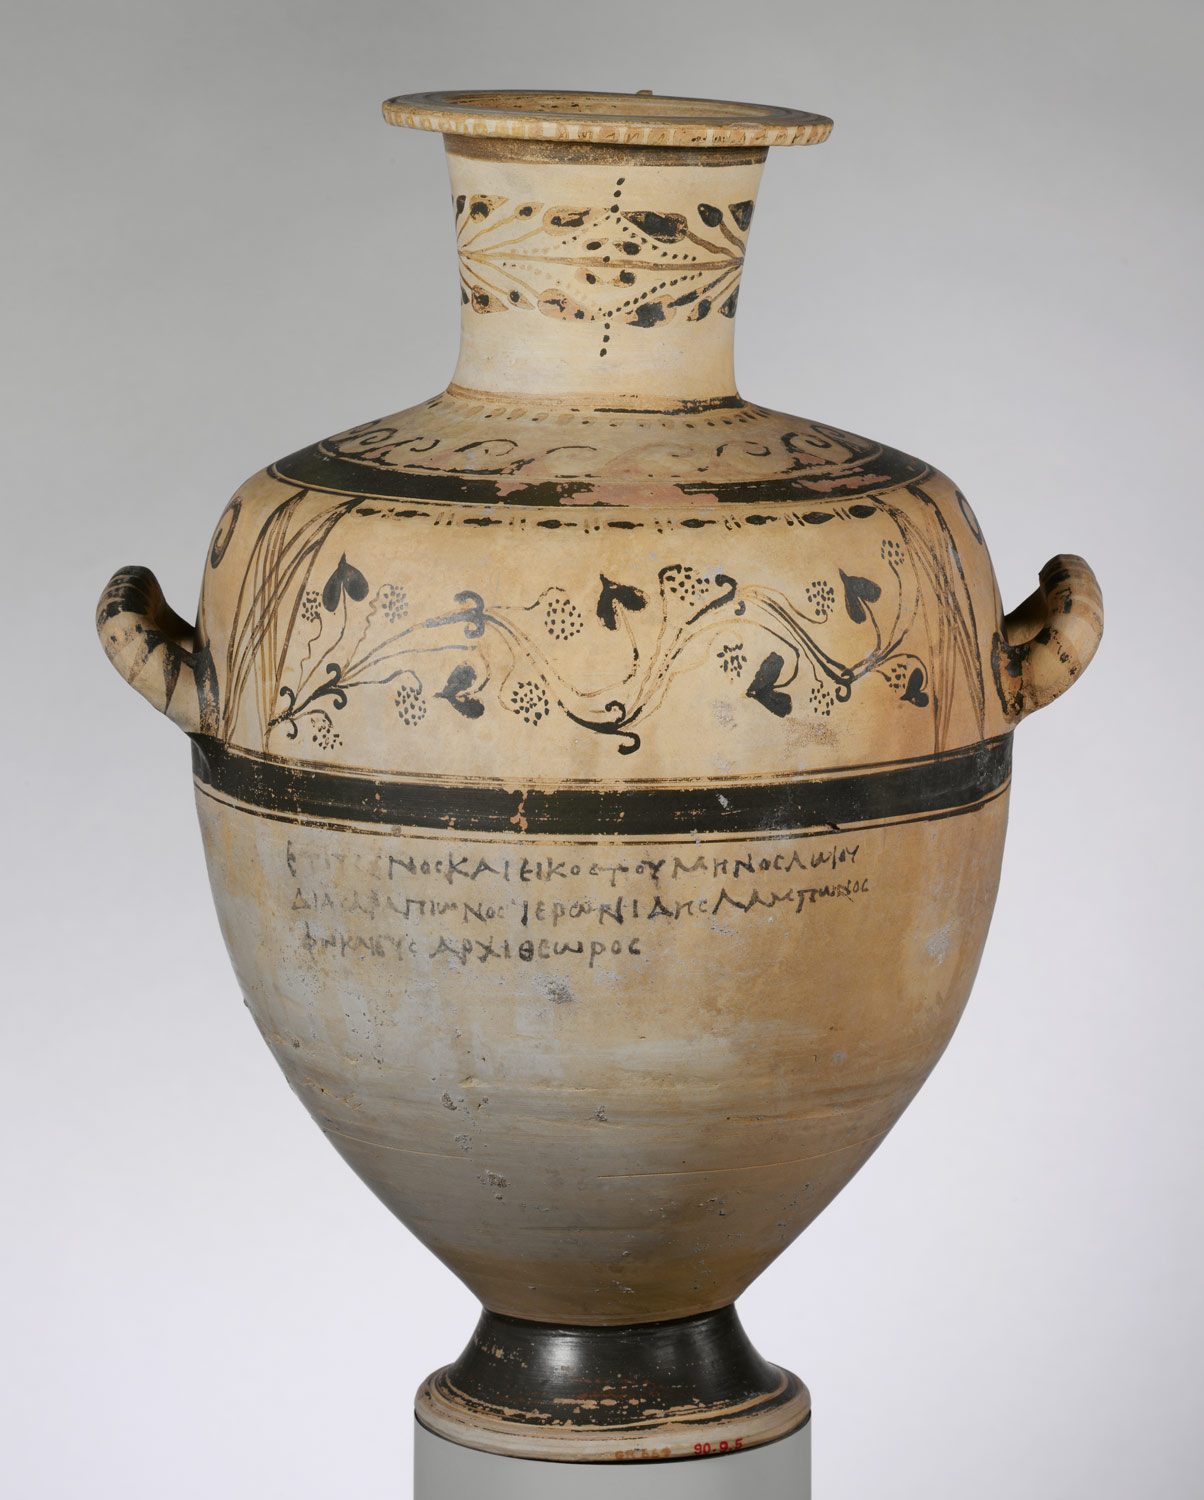 ΕΤΙΤΕΝΟΣΚΑΙΕΙΚΟΣΤΟΥΜΗΝΟΣΛΩΙΟΥ
ΔΙΑΣΑΡΑΠΙΩΝΟΣΙΕΡΩΝΙΔΗΣΛΑΜΠΩΝΟΣ
ΦΩΚΑΙΕΥΣ ΑΡΧΙΘΕΩΡΟΣ
90.9.5